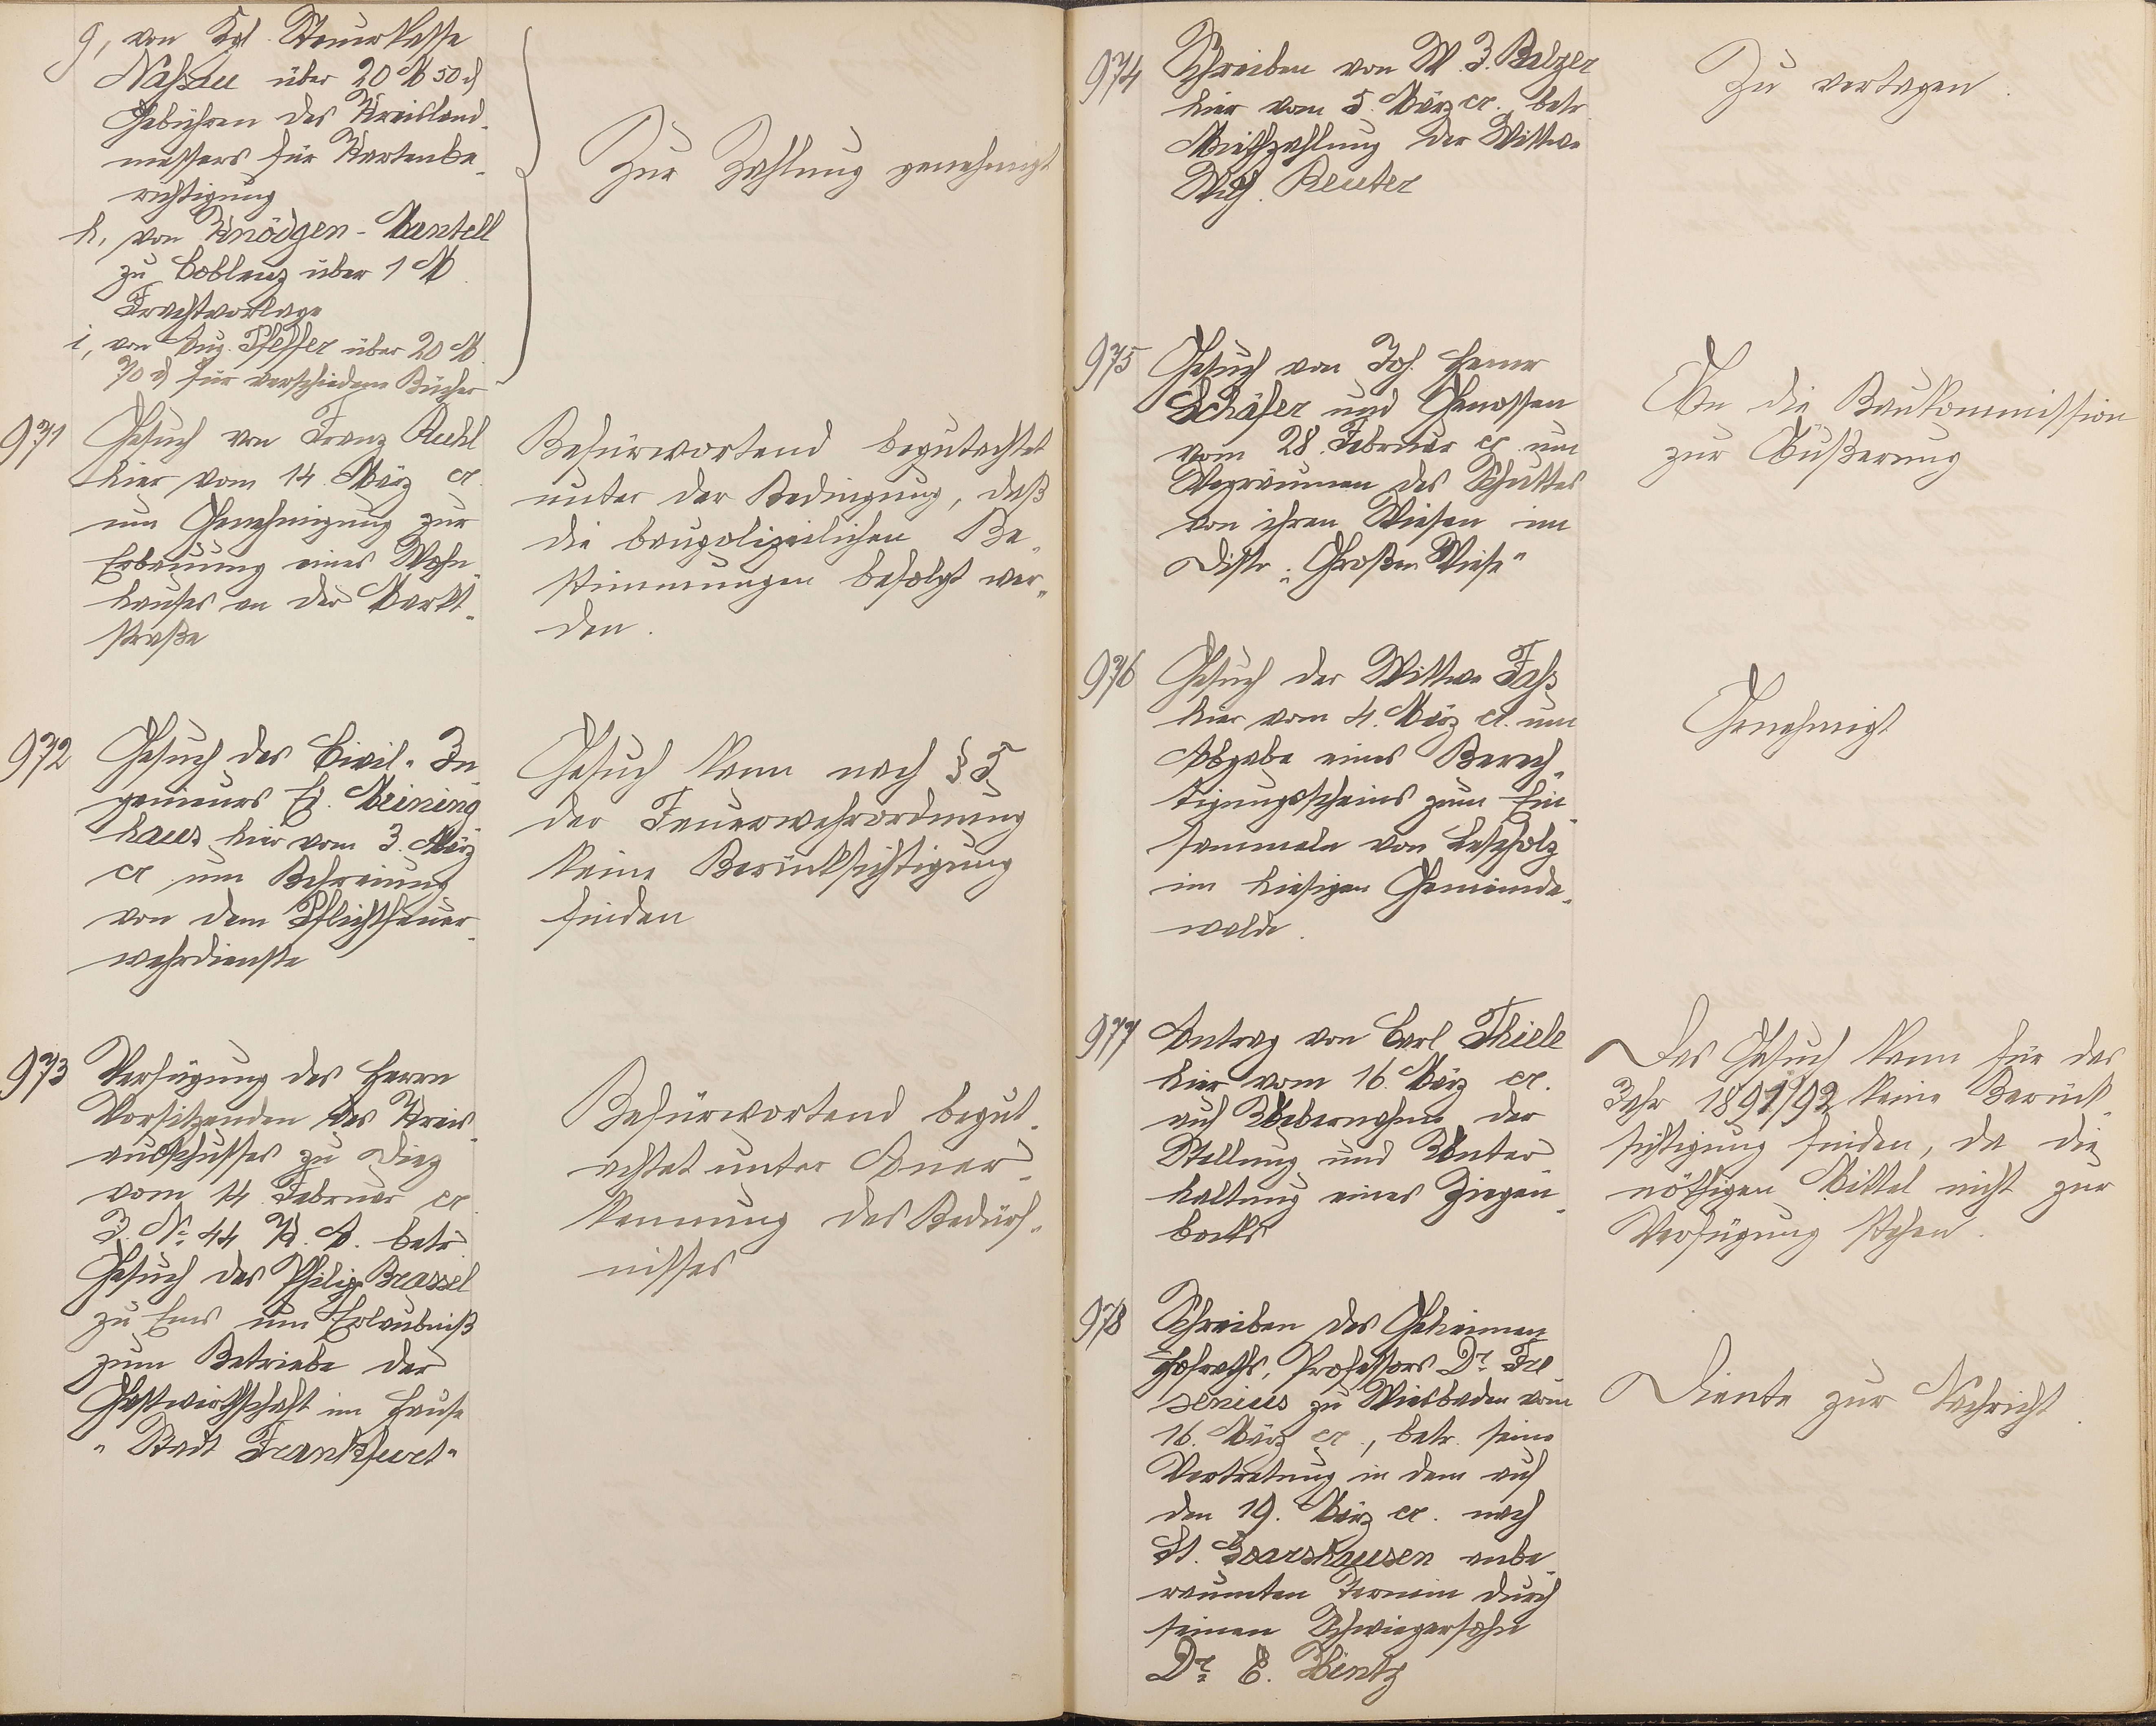 g, von Kgl. Steuerkasse
Nassau über 20 M 50 ₰
Gebühren des Kreisland-
messers für Kartenbe-
richtigung
h, von Knödgen-Mantell
zu Coblenz über 1 M
Frachtvorlage
i, von Aug. Pfeffer über 20 M
70 ₰ für verschiedene Bücher
Zur Zahlung genehmigt
971 Gesuch von Franz Ruhl
hier vom 14. März cr.
um Genehmigung zur
Erbauung eines Wohn-
hauses an der Markt-
straße
Befürwortend begutachtet
unter der Bedingung, daß
die baupolizeilichen Be-
stimmungen befolgt wer-
den.
972 Gesuch des Civil-In-
genieurs Ed. Meining
haus hier vom 3. März
cr um Befreiung
von dem Pflichtfeuer-
wehrdienste
Gesuch kann nach § 5
der Feuerwehrordnung
keine Berücksichtigung
finden
973 Verfügung des Herrn
Vorsitzenden des Kreis-
ausschusses zu Diez
vom 14. Februar cr.
J. No 44 K. A. betr.
Gesuch des Philipp Brassel
zu Ems um Erlaubniß
zum Betriebe der
Gastwirthschaft im Hause
"Stadt Frankfurt"
Befürwortend begut-
achtet unter Aner-
kennung des Bedürf-
nisses
974 Schreiben von W. J. Balzer
hier vom 5. März cr. betr
Miethzahlung der Wittwe
Wilh. Reuter
Zu vertagen.
975 Gesuch von Joh. Henr
Schäfer und Genossen
vom 28. Februar cr. um
Wegräumen des Schuttes
von ihren Wiesen im
Distr. "Großen Wiese"
An die Baukommission
zur Äußerung
976 Gesuch der Wittwe Fass
hier vom 4. März cr. um
Abgabe eines Berech-
tigungsscheins zum Ein-
sammeln von Leseholz
im hiesigen Gemeinde-
walde.
Genehmigt
977 Antrag von Carl Thiele
hier vom 16. März cr.
auf Uebernahme der
Stellung und Unter-
haltung eines Ziegen-
bocks
Das Gesuch kann für das
Jahr 1891/92 keine Berück-
sichtigung finden, da die
nöthigen Mittel nicht zur
Verfügung stehen.
978 Schreiben des Geheimen
Hofraths, Professors Dr. Fre
senius zu Wiesbaden vom
16. März cr., betr. seine
Vertretung in dem auf
den 19. März cr. nach
St. Goarshausen anbe-
raumten Termin durch
seinen Schwiegersohn
Dr. E. Hintz
Diente zur Nachricht.